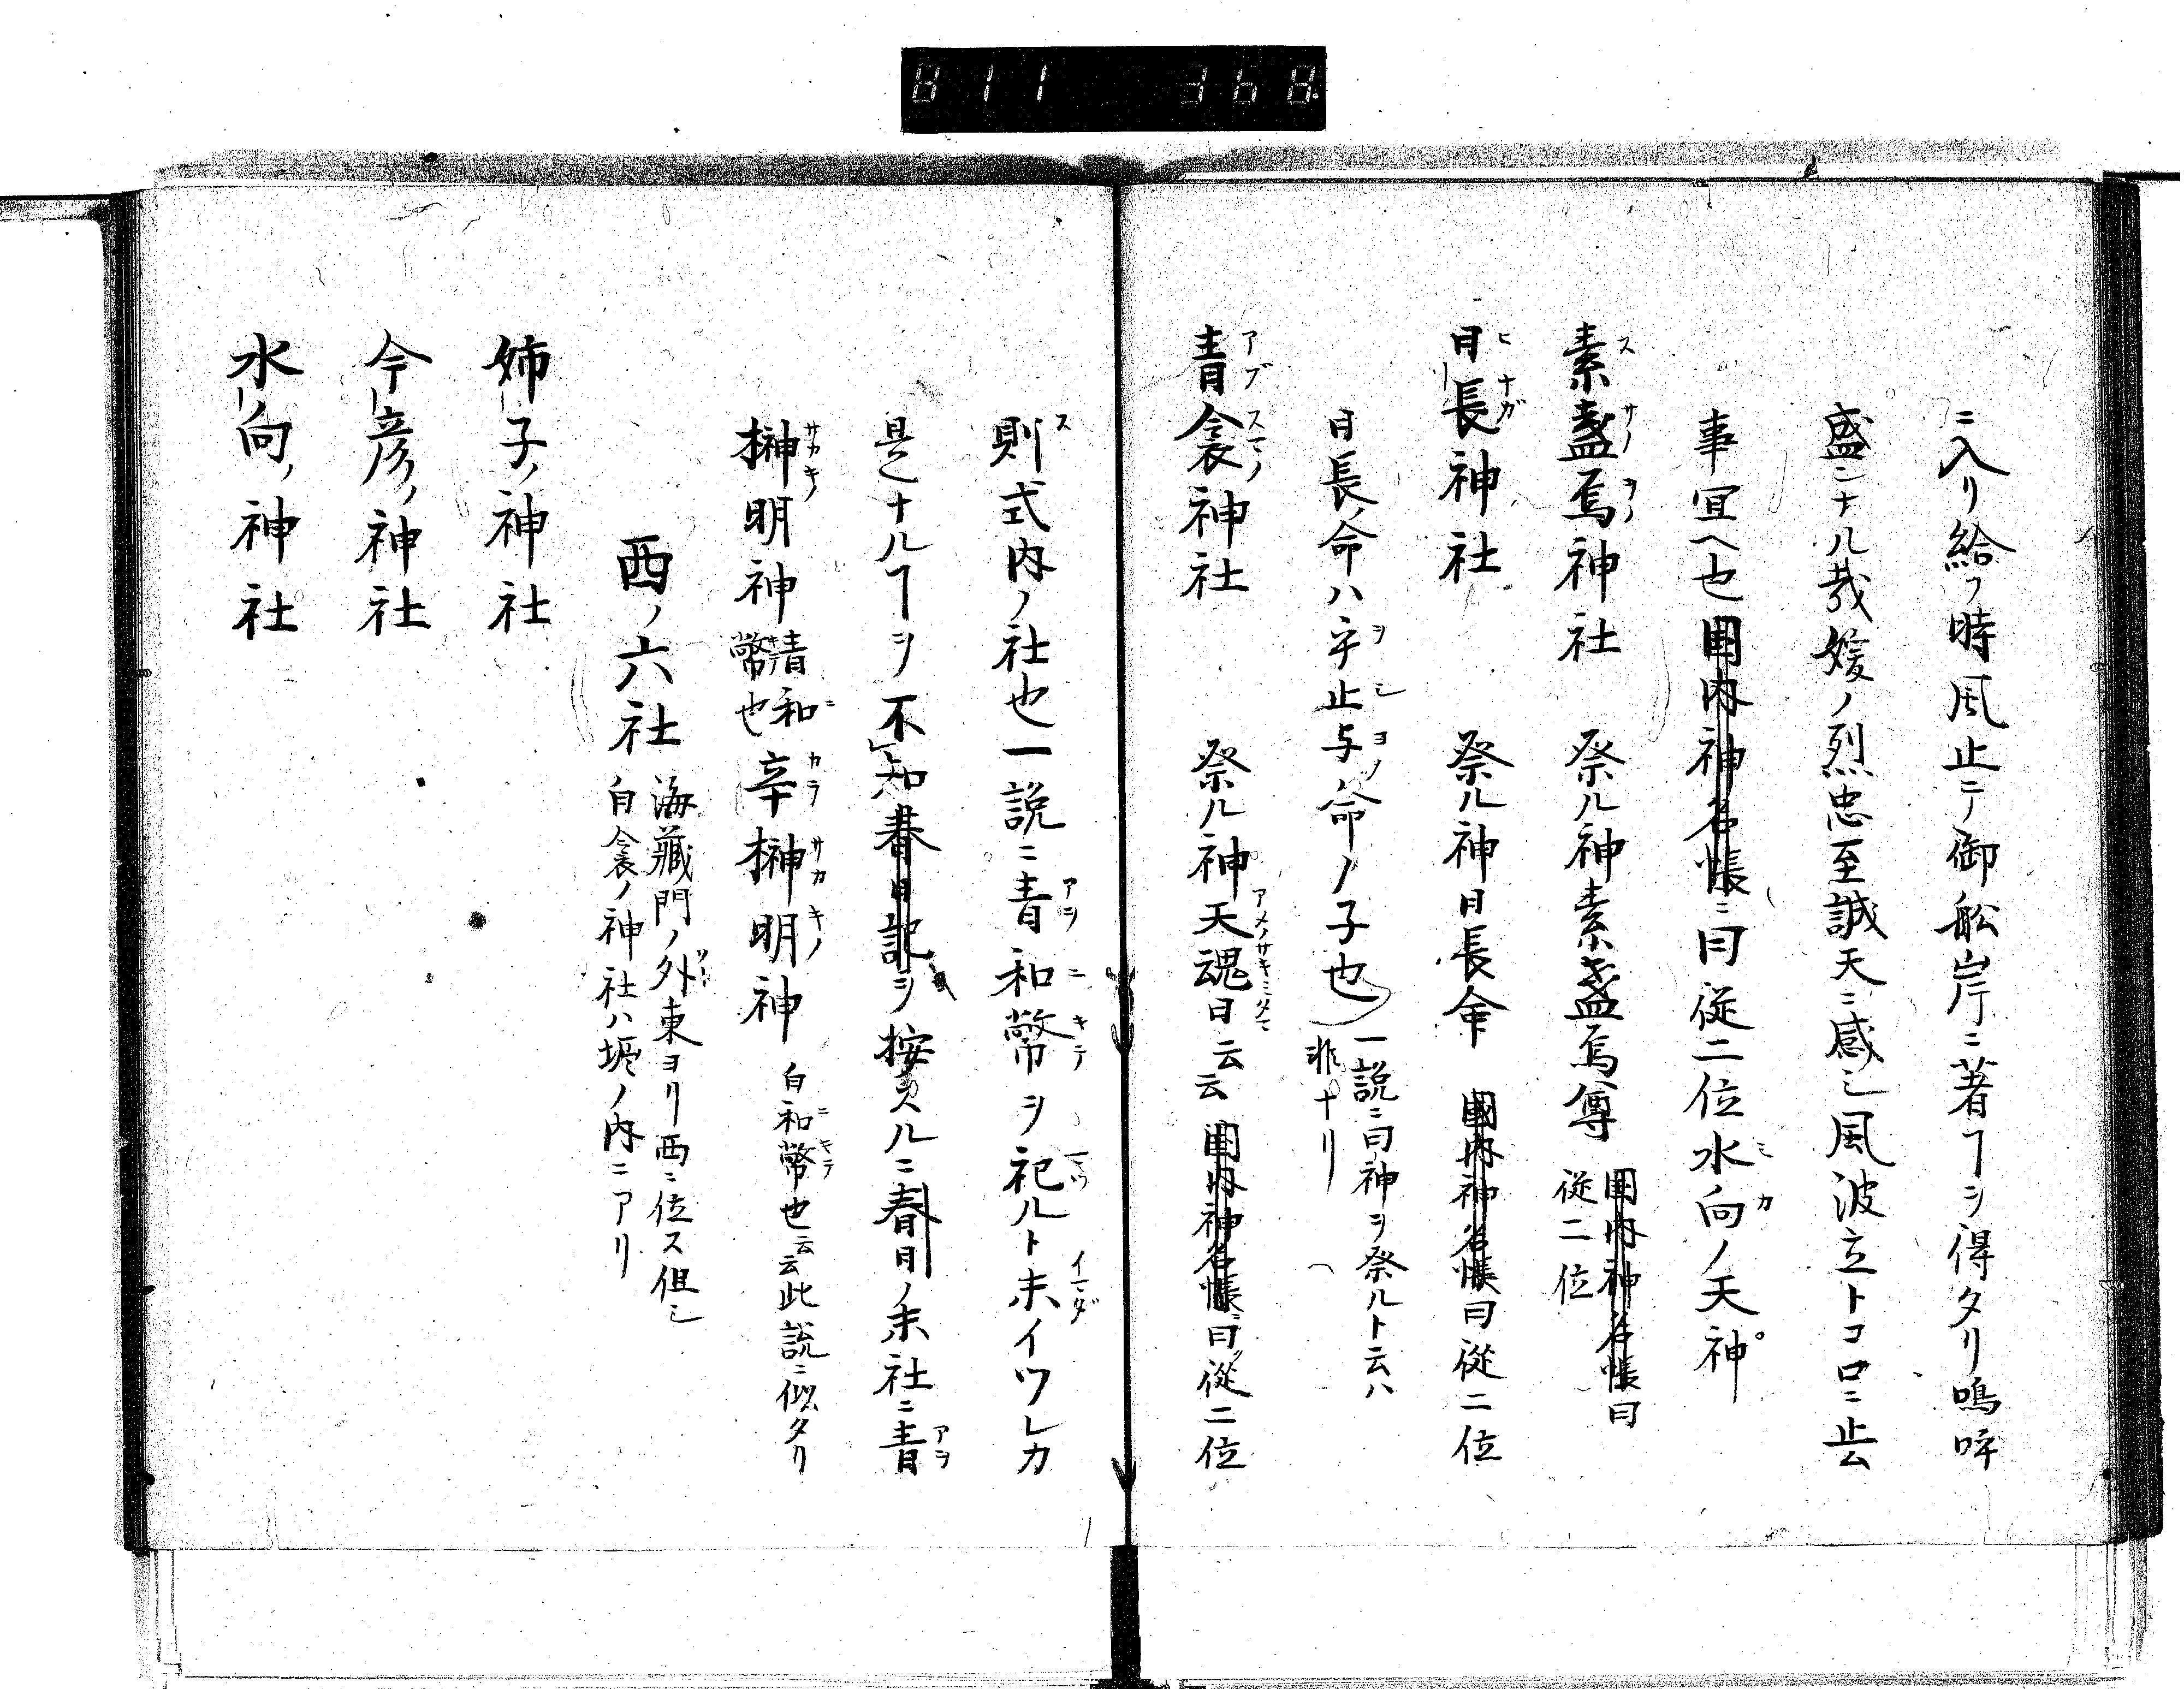 811 368
ニ入リ給フ時風止ニテ御舩岸ニ著ヿヲ得タリ嗚呼
盛ニナル哉媛ノ烈忠至誠天ニ感シ風波立トコロニ止ム
事宜ヘ也国内神名帳ニ曰従二位水向ノ天神
素盞烏神社 祭ル神素盞烏尊 国内神名帳曰
従二位
日長神社 祭ル神日長命 國内神名帳曰従二位
日長命ハ乎止与命ノ子也 一説ニ曰神ヲ祭ルト云ハ
非ナリ
青衾神社 祭ル神天魂日云云 国内神名帳曰従二位
則式内ノ社也一説ニ青和幣ヲ祀ルト未イツレカ
是ナルヿヲ不知春日記ヲ按スルニ春日ノ末社ニ青
榊明神 青和
幣也 辛榊明神 白和幣也云云此説ニ似タリ
西ノ六社 海藏門ノ外東ヨリ西ニ位ス但シ
白衾ノ神社ハ垣ノ内ニアリ
姉子ノ神社
今彦ノ神社
水向ノ神社